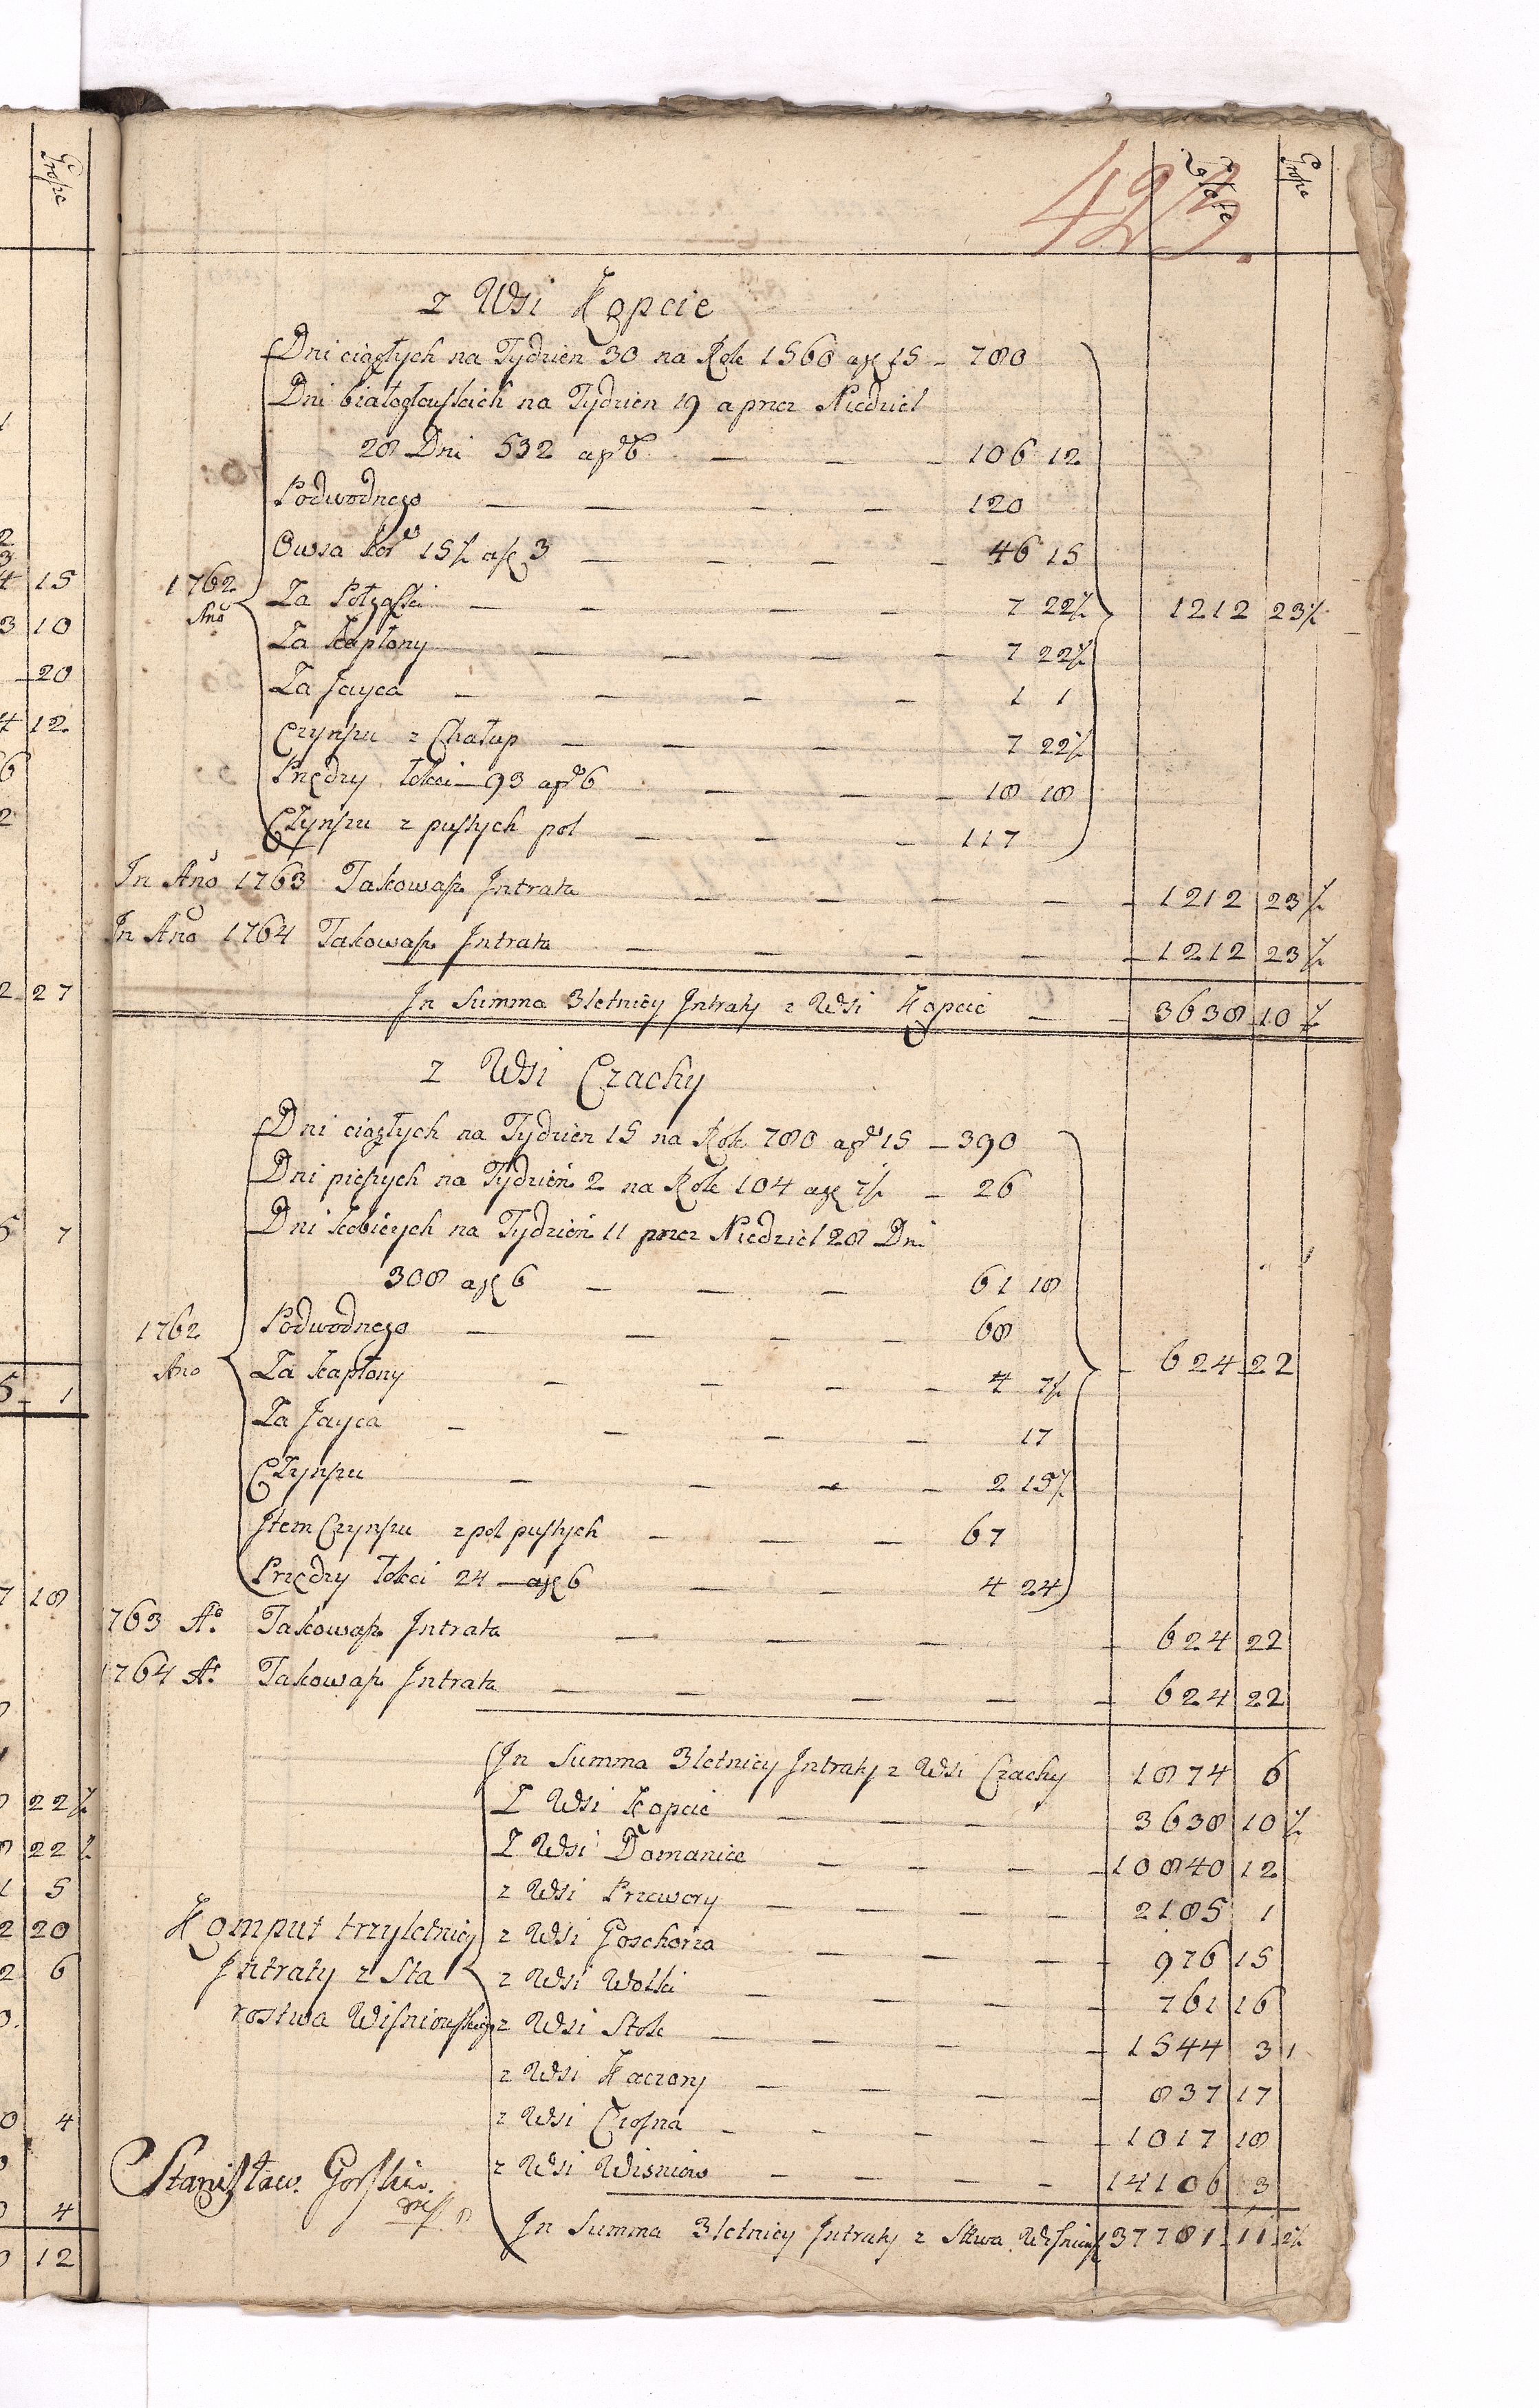 423.
Złote Grosze
z Wsi Kopcie
Dni ciągłych na Tydzien 30 na Rok 1560 a gr 15 – 780
Dni białogłowskich na Tydzien 19 a przez Niedziel
28 Dni 532 a gr 6 – – – 106 12
Podwodnego – – – – – 120
Owsa kor 15½ a zł 3 – – – – 46 15
1762 Ano
Za Połgąski – – – – 7 22½ 1212 23½
Za Kapłony – – – – 7 22½
Za Jayca – – – – 1 1
Czynszu z Chałup – – – 7 22½
Przędzy łokci – 93 a gr 6 – – – 18 18
Czynszu z pustych pol – – – 117
In Ano 1763 Takoważ Intrata – – – – – 1212 23½
In Ano 1764 Takoważ Intrata – – – – – 1212 23½
In Summa 3letniey Intraty z Wsi Kopcie – – 3638 10½
z Wsi Czachy
Dni ciągłych na Tydzien 15 na Rok 780 a gr 15 – 390
Dni pieszych na Tydzień 2 na Rok 104 a gr 7½ – 26
Dni kobiecych na Tydzień 11 przez Niedziel 28 Dni
308 a gr 6 – – – 61 18
1762 Ano
Podwodnego – – – – 68
Za Kapłony – – – – – 4 7½ – 624 22
Za Jayca – – – – 17
Czynszu – – – – 2 15½
Item Czynszu z pol pustych – – – 67
Przędzy łokci 24 – a gr 6 – – 4 24
1763 Ao Takoważ Intrata – – – – 624 22
1764 Ao Takoważ Intrata – – – – – 624 22
In Summa 3letniey Intraty z Wsi Czachy 1874 6
Z Wsi Kopcie – – – 3638 10½
Z Wsi Domanice – – – – 10840 12
z Wsi Przewory – – – – 2185 1
z Wsi Goschorza – – – – 976 15
z Wsi Wolki – – – – 761 16
z Wsi Stok – – – – 1544 3 1
z Wsi Kaczory – – – – 837 17
z Wsi Czosna – – – – – 1017 18
z Wsi Wisniow – – – – 14106 3
Komput trzyletniey
Intraty z Sta
rostwa Wisniowskiego
In Summa 3letniey Intraty z Sttwa Wisniew 37781 11 ½
Stanisław Gorski